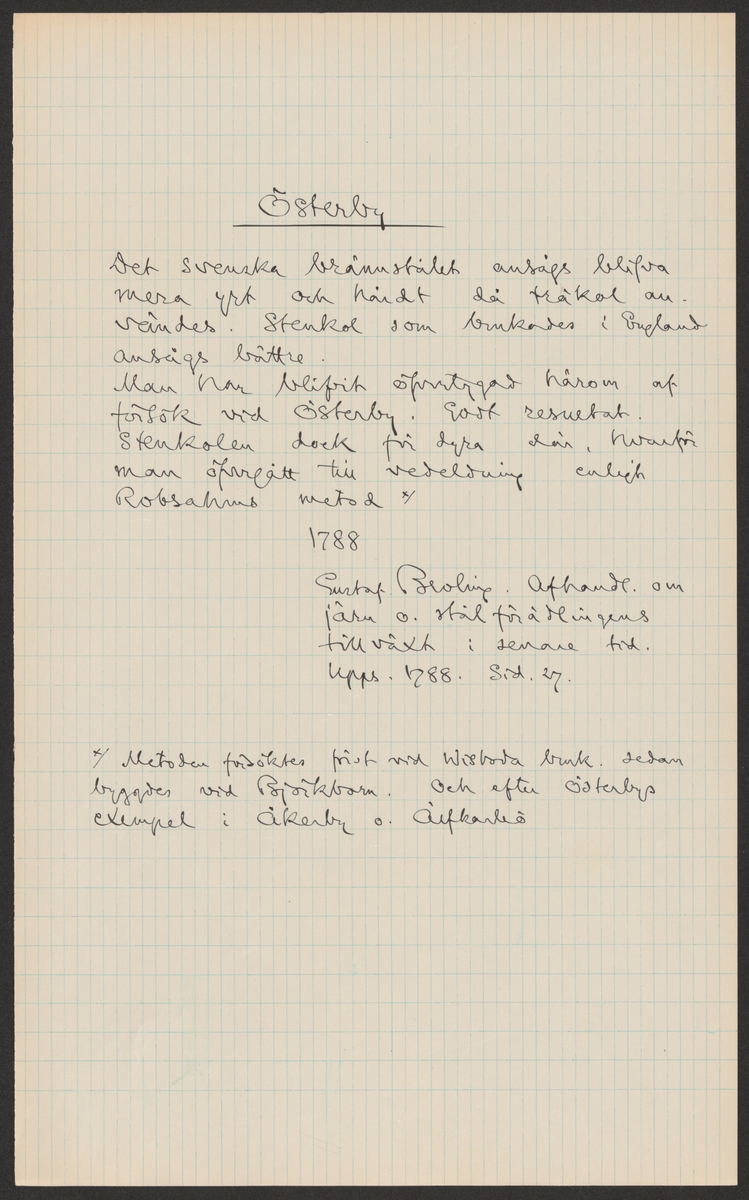 Österby
Det svenska brännstålet ansågs blifva
mera yrt och hårdt då träkol an-
vändes. Stenkol som brukades i England
ansågs bättre.
Man har blifvit öfvertygad härom af
försök vid Österby. Godt resultat.
Stenkolen dock för dyra där, hvarför
man öfvergått till vedeldning enligt
Robsahms metod x/
1788
Gustaf Broling. Afhandl. om
järn o. stålförädlingens
tillväxt i senare tid.
Upps. 1788. Sid. 27.
x/ Metoden försöktes först vid Wisboda bruk. sedan
byggdes vid Björkborn. Och efter Österbys
exempel i Åkerby o. Älfkarleö